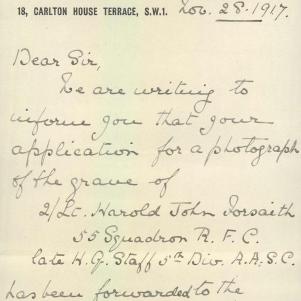 18, CARLTON HOUSE TERRACE, S.W.1. Nov. 28. 1917.
Dear Sir,
We are writing to
inform you that your
application for a photograph
of the grave of
2/Lt. Harold John Forsaith
55 Squadron R. F. C.
late H.Q. Staff 5th Div. A.A.S.C.
has been forwarded to the